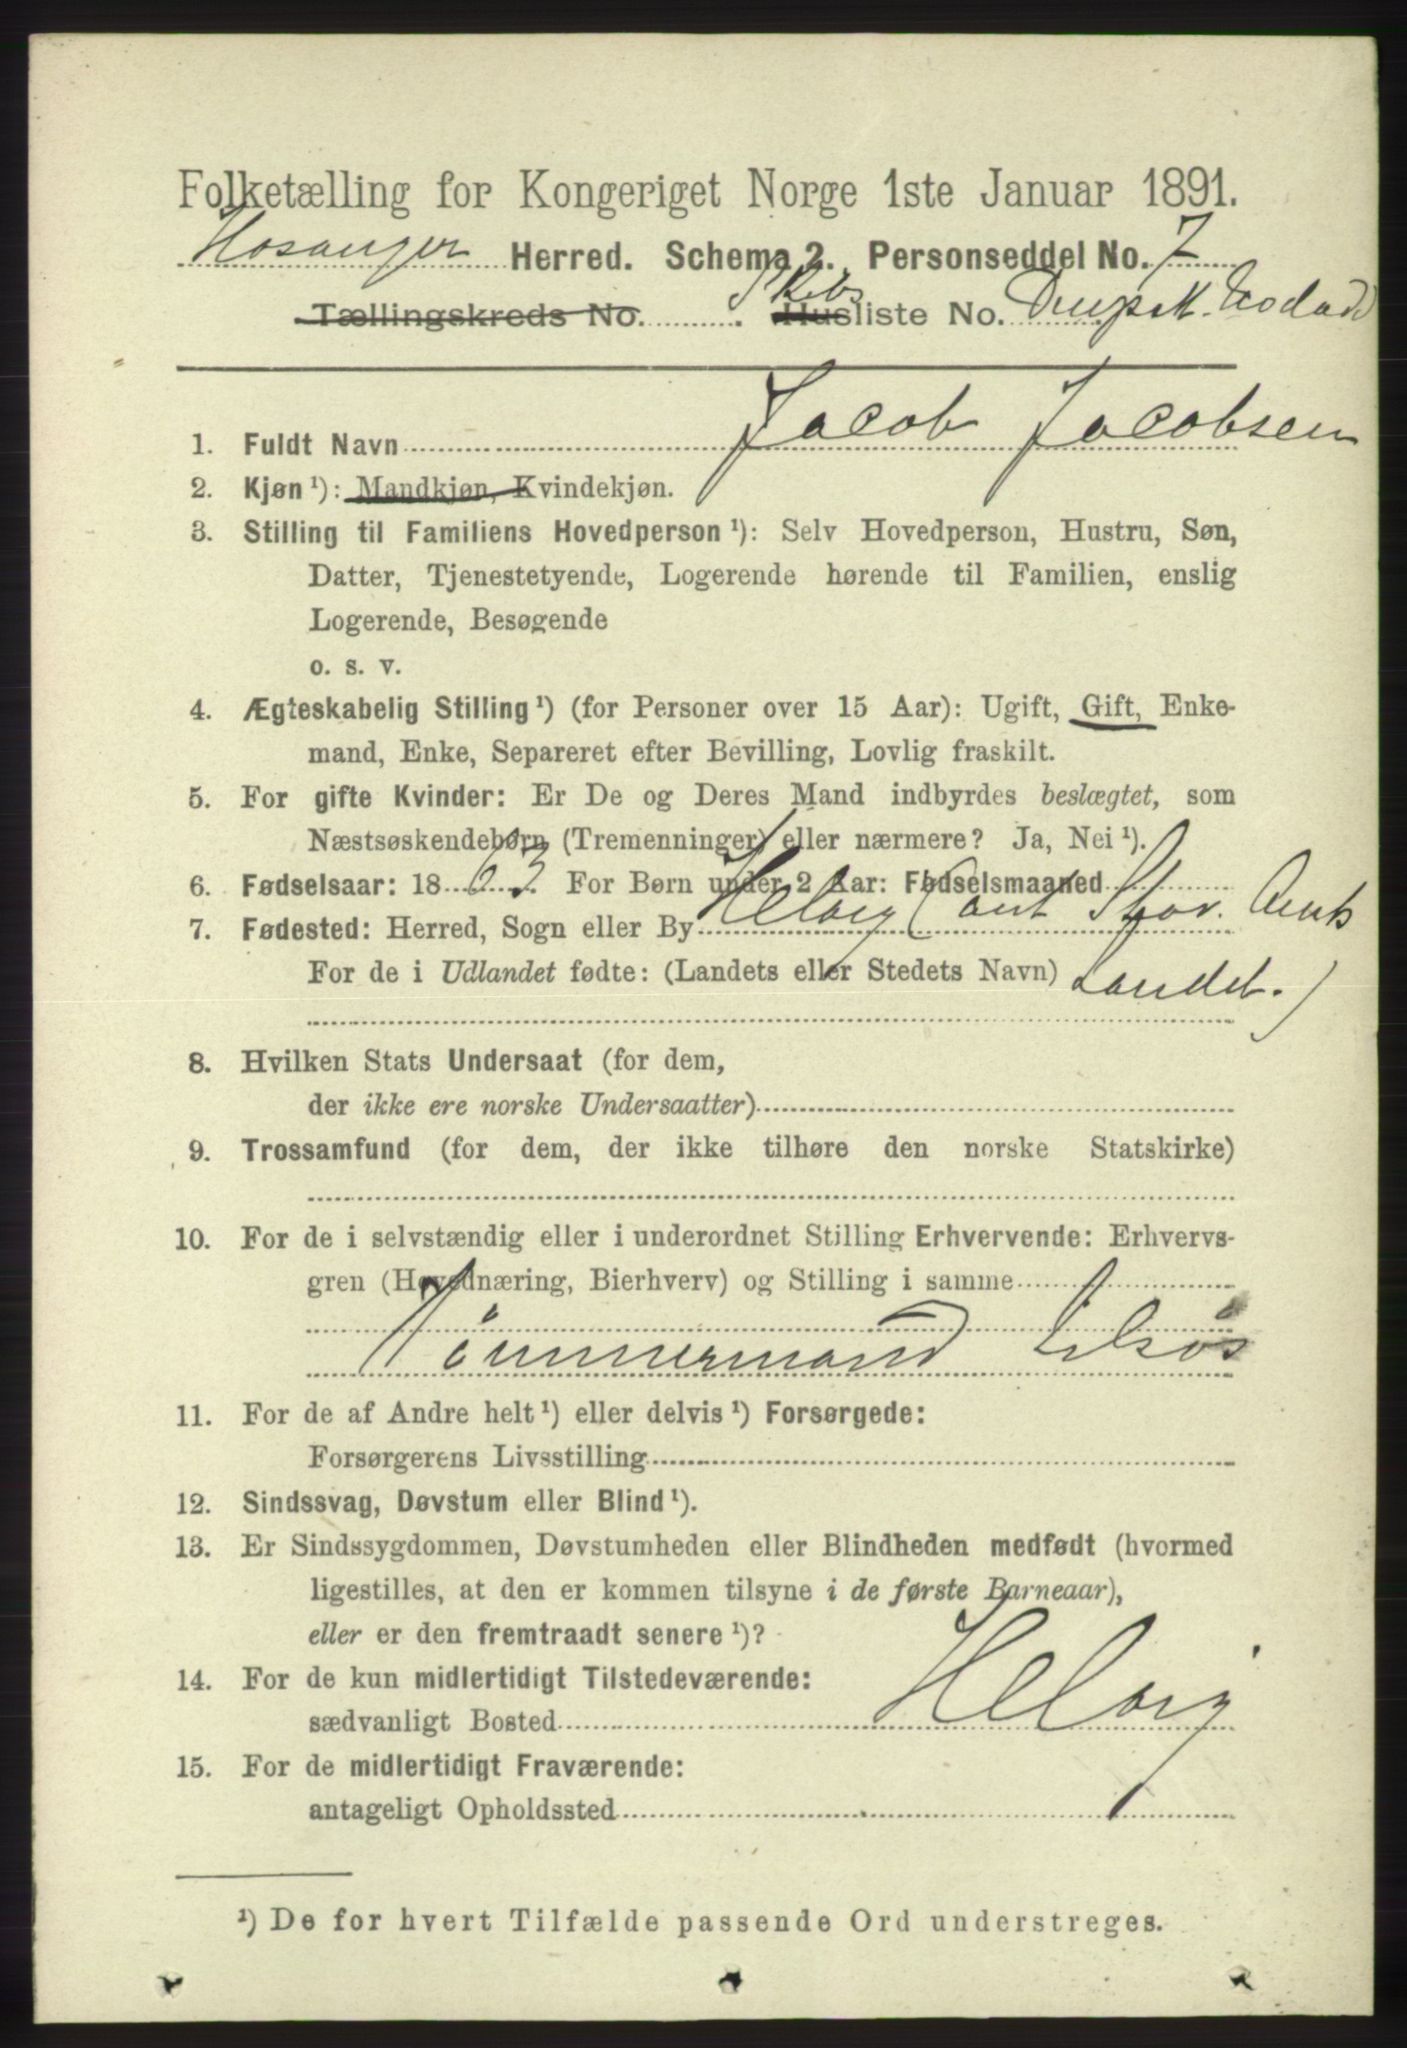 Folketælling for Kongeriget Norge 1ste Januar 1891.
Hosanger Herred. Schema 2. Personseddel No. 7
Tællingskreds No. Skibs Husliste No. Dmpsk.
1. Fuldt Navn Jacob Jacobsen
2. Kjøn ¹): Mandkjøn, Kvindekjøn.
3. Stilling til Familiens Hovedperson ¹): Selv Hovedperson, Hustru, Søn,
Datter, Tjenestetyende, Logerende hørende til Familien, enslig
Logerende, Besøgende
o. s. v.
4. Ægteskabelig Stilling ¹) (for Personer over 15 Aar): Ugift, Gift, Enke-
mand, Enke, Separeret efter Bevilling, Lovlig fraskilt.
5. For gifte Kvinder: Er De og Deres Mand indbyrdes beslægtet, som
Næstsøskendebørn (Tremenninger) eller nærmere? Ja, Nei ¹).
6. Fødselsaar: 1863. For Børn under 2 Aar: Fødselsmaaned
7. Fødested: Herred, Sogn eller By Helvig (ant Stav. Amts
For de i Udlandet fødte: (Landets eller Stedets Navn) Landet.)
8. Hvilken Stats Undersaat (for dem,
der ikke ere norske Undersaatter)
9. Trossamfund (for dem, der ikke tilhøre den norske Statskirke)
10. For de i selvstændig eller i underordnet Stilling Erhvervende: Erhvervs-
gren (Hovednæring, Bierhverv) og Stilling i samme
Tömmermand tilsös
11. For de af Andre helt ¹) eller delvis ¹) Forsørgede:
Forsørgerens Livsstilling
12. Sindssvag, Døvstum eller Blind ¹).
13. Er Sindssygdommen, Døvstumheden eller Blindheden medfødt (hvormed
ligestilles, at den er kommen tilsyne i de første Barneaar),
eller er den fremtraadt senere ¹)?
14. For de kun midlertidigt Tilstedeværende:
sædvanligt Bosted Helvig
15. For de midlertidigt Fraværende:
antageligt Opholdssted
¹) De for hvert Tilfælde passende Ord understreges.